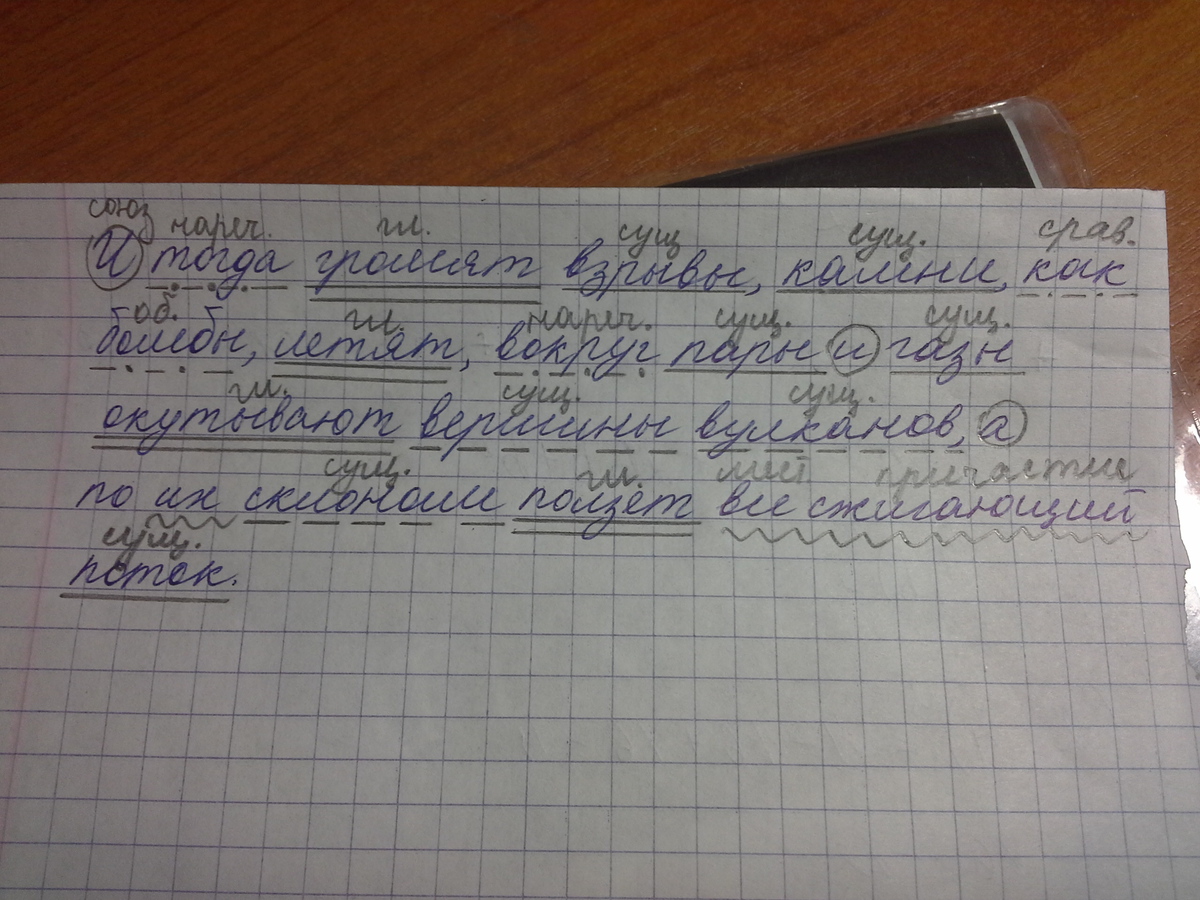 союз нареч. гл. сущ сущ. срав.
И тогда гремят взрывы, камни, как
об. гл. нареч. сущ. сущ.
бомбы, летят, вокруг пары и газы
гл. сущ. сущ.
окутывают вершины вулканов, а
сущ. гл. причастие
по их склонам ползет все сжигающий
сущ.
поток.